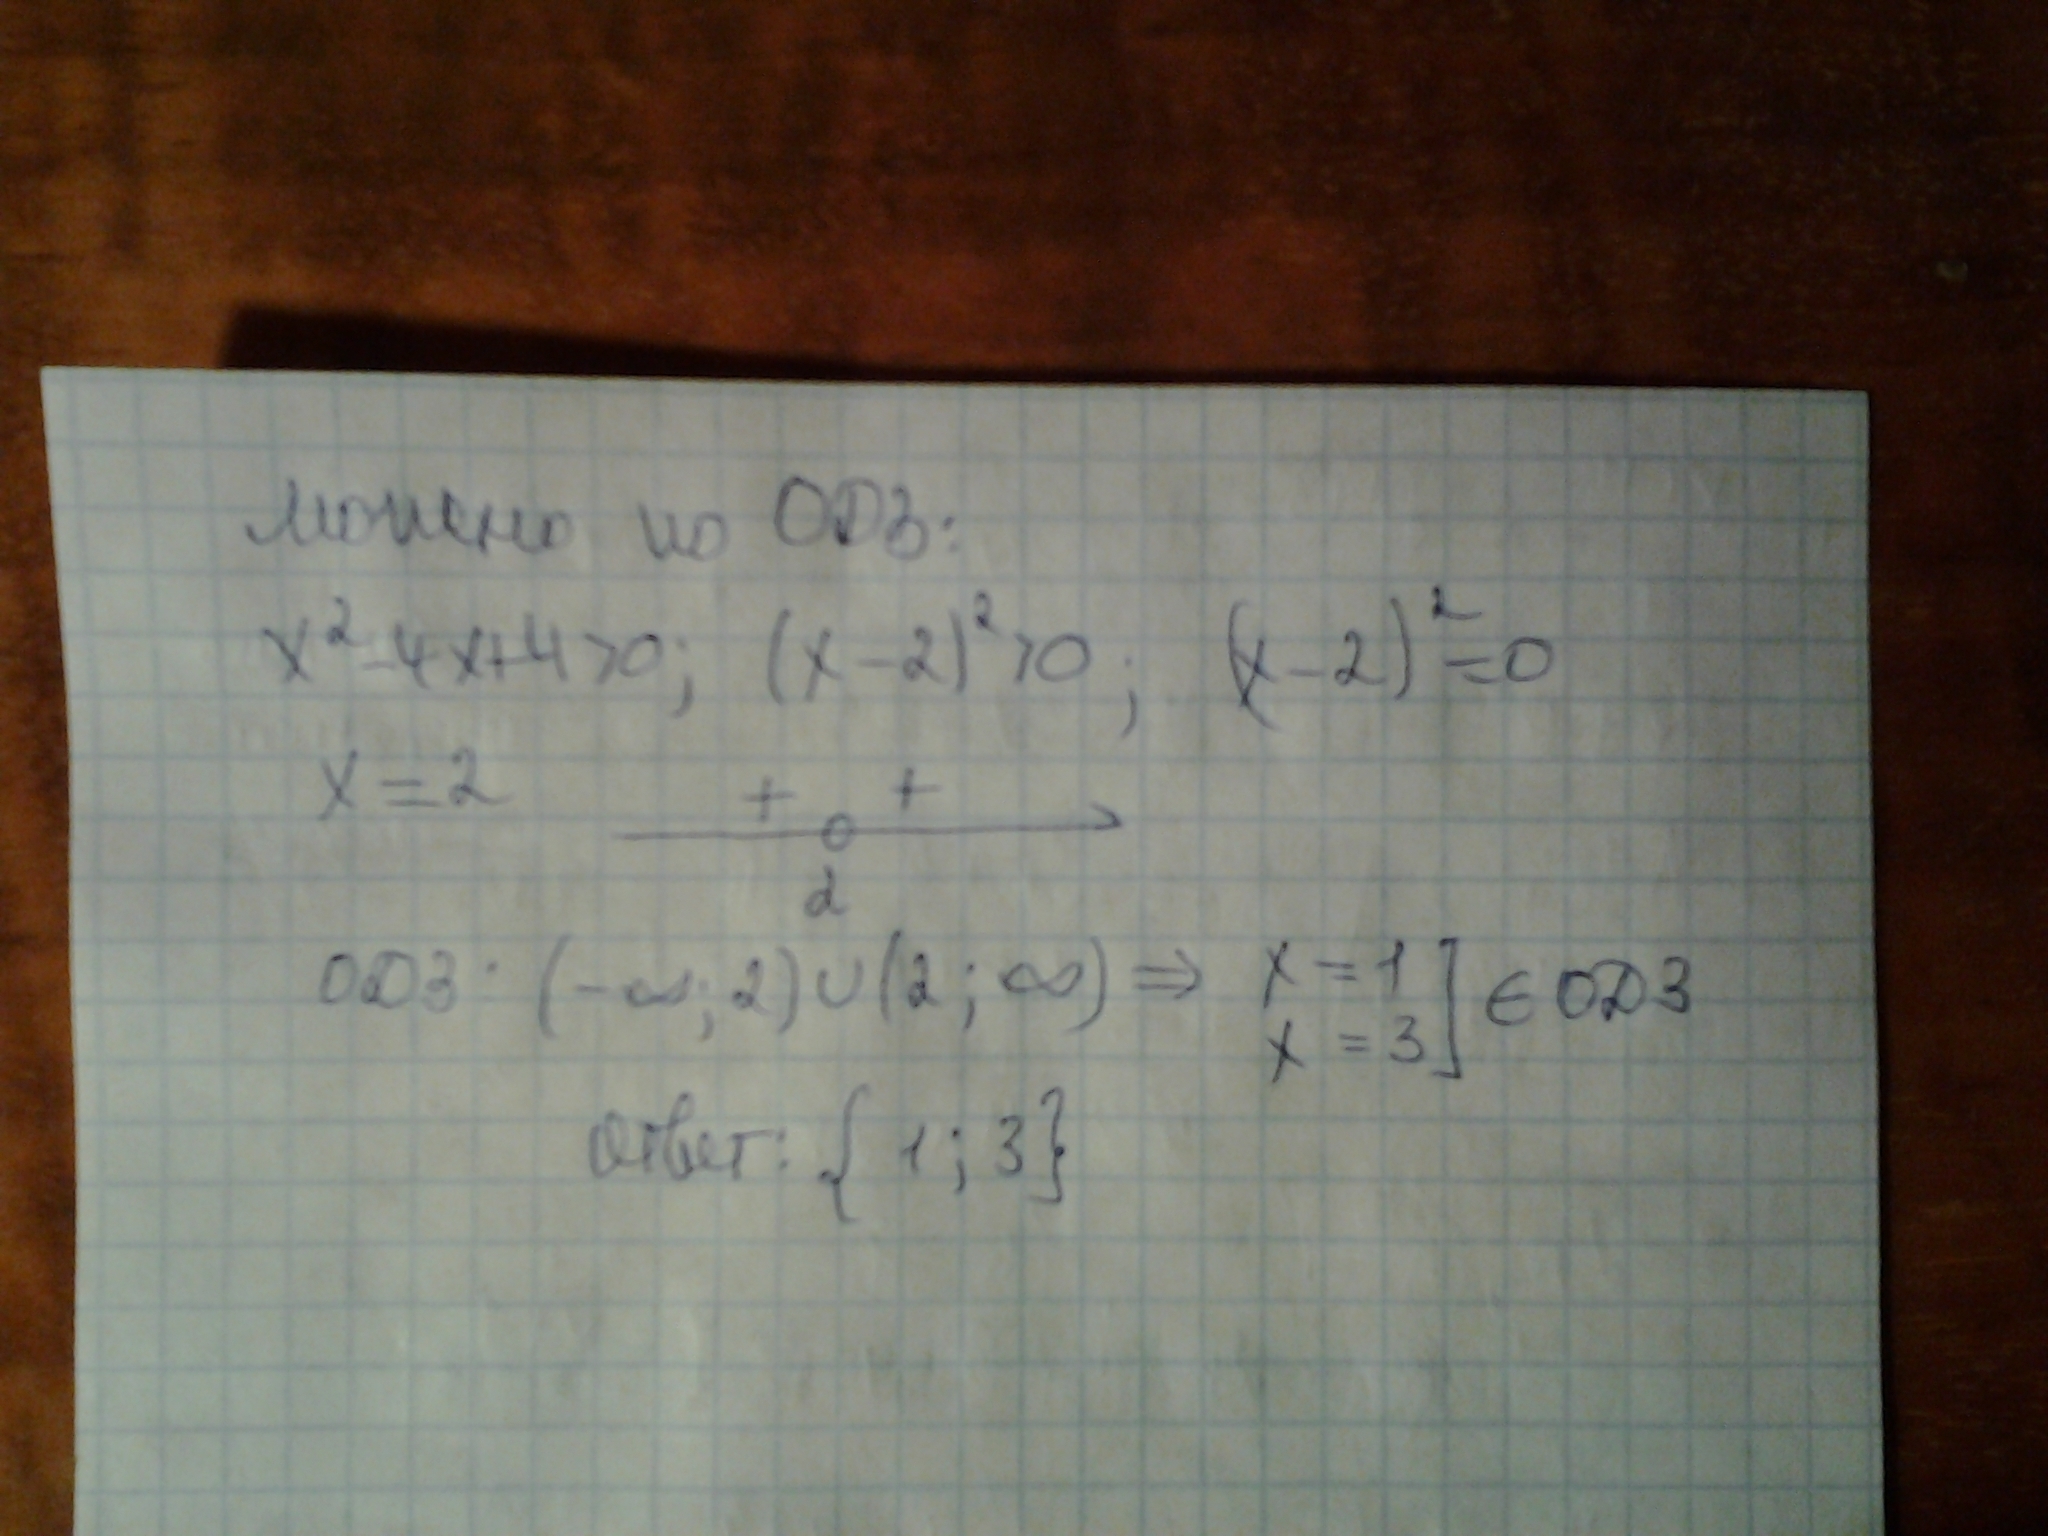 Можно по ОДЗ:
x²-4x+4>0; (x-2)²>0; (x-2)²=0
x=2 + +
2
ОДЗ: (-∞;2)∪(2;∞) ⇒ x=1
x=3 ] ∈ ОДЗ
Ответ: {1;3}